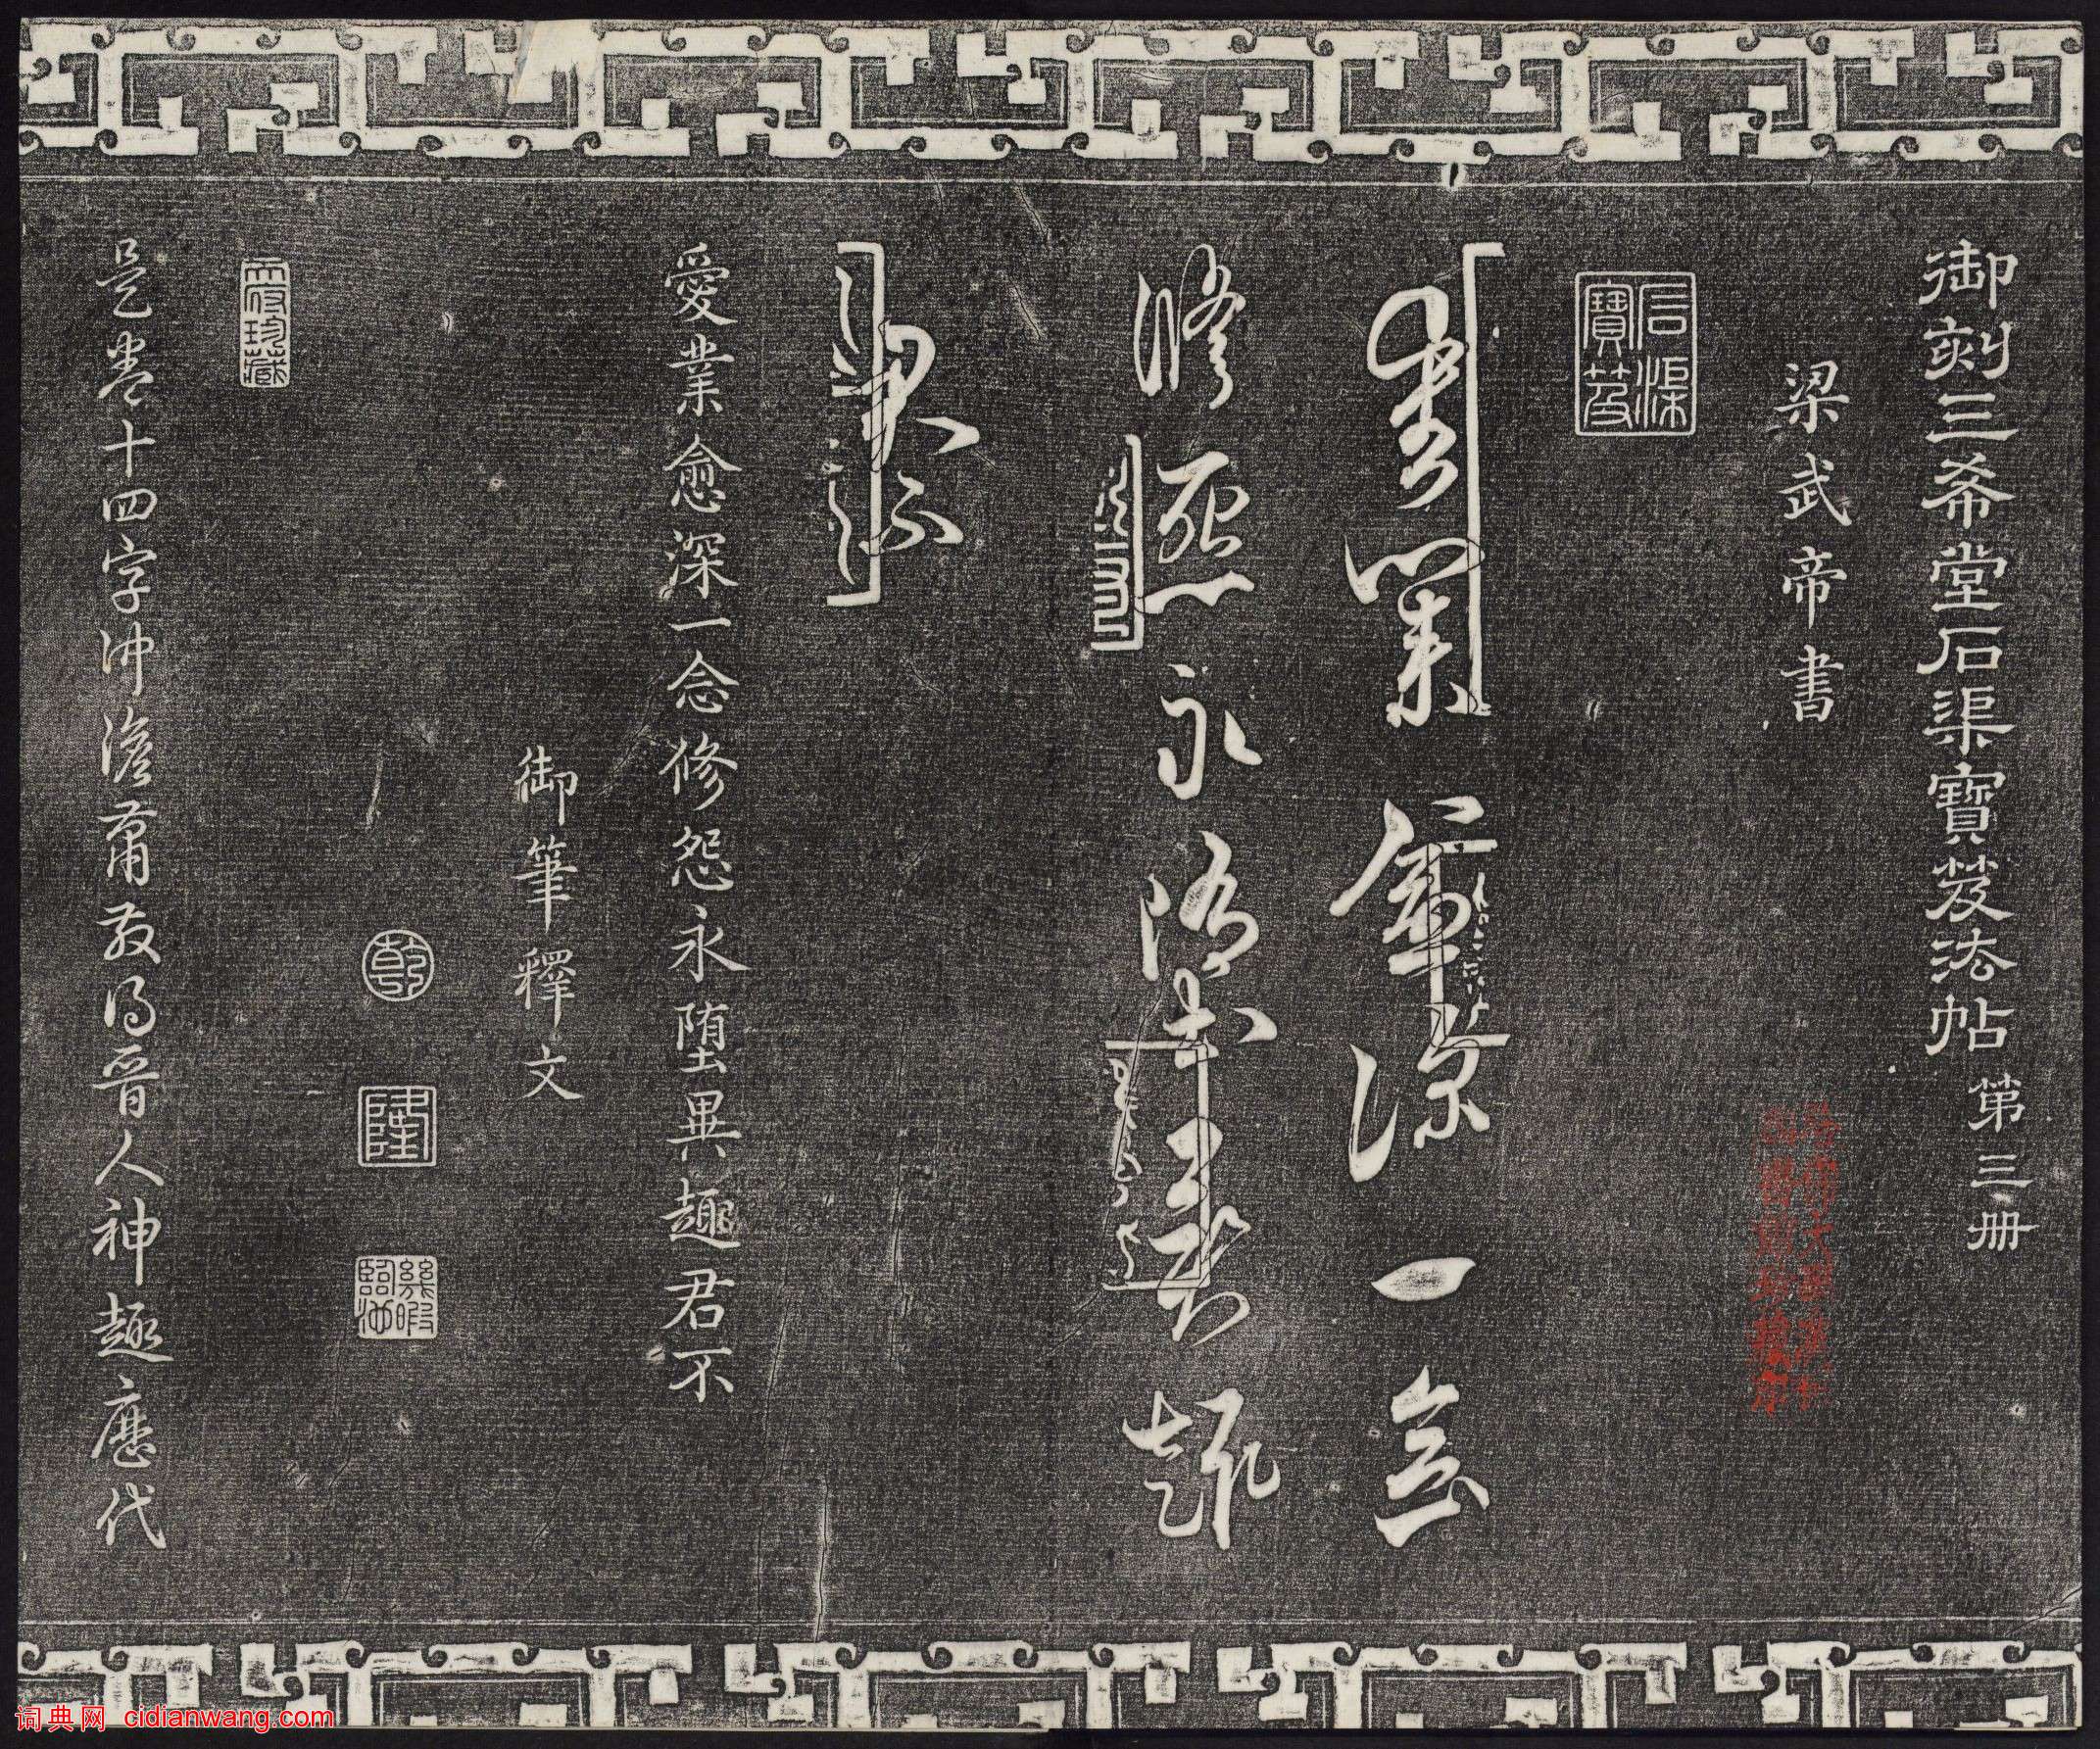 御刻三希堂石渠寶笈法帖 第三册
梁武帝書
石渠寶笈
愛業愈深一念
脩怨永墮異趣
君不
愛業愈深一念修怨永堕異趣君不
御筆釋文
乾
隆
幾暇臨池
是卷十四字沖澹蕭散得晉人神趣歷代
词典网 cidianwang.com